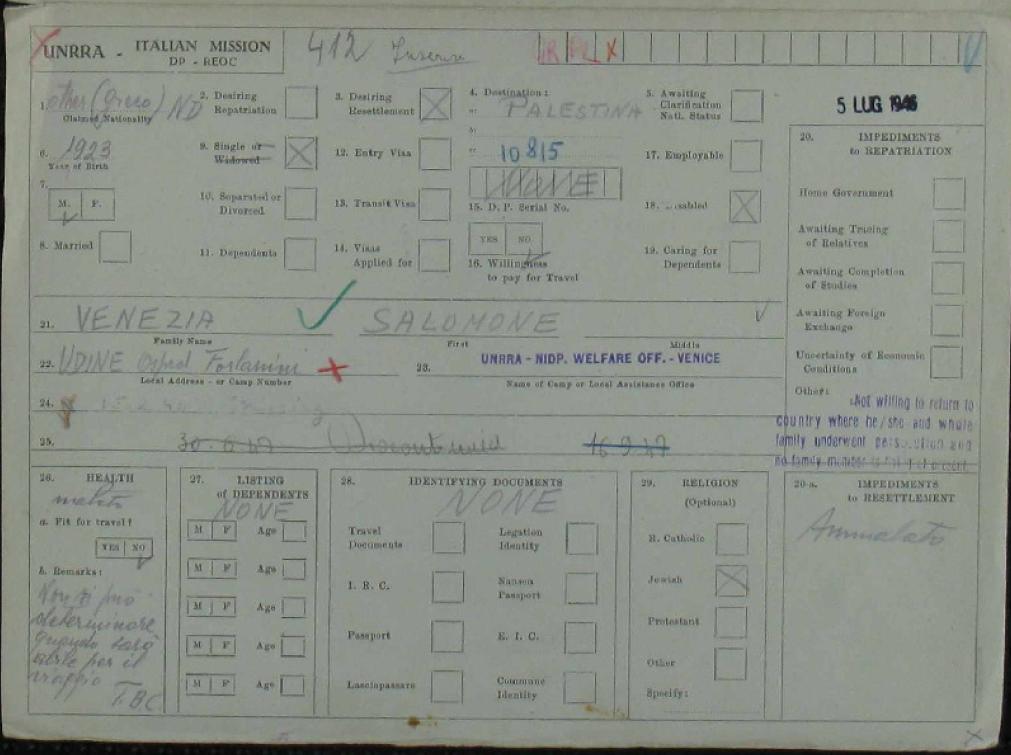 UNRRA - ITALIAN MISSION
DP - REOC
412
UR PL X
1. other (greco) ND
Claimed Nationality
2. Desiring Repatriation
3. Desiring Resettlement X
4. Destination:
a. PALESTINA
b.
c. 10815
5. Awaiting Clarification Natl. Status
5 LUG 1946
6. 1923
Year of Birth
9. Single or Widowed X
12. Entry Visa
NONE
15. D. P. Serial No.
17. Employable
7.
M. F.
10. Separated or Divorced
13. Transit Visa
18. Disabled X
8. Married
11. Dependents
14. Visas Applied for
YES NO
16. Willingness to pay for Travel
19. Caring for Dependents
20. IMPEDIMENTS
to REPATRIATION
Home Government
Awaiting Tracing of Relatives
Awaiting Completion of Studies
Awaiting Foreign Exchange
Uncertainty of Economic Conditions
Other:
Not willing to return to
country where he/she and whole
family underwent persecution and
no family member is
21. VENEZIA SALOMONE
Family Name First Middle
22. UDINE Osped Forlanini X
Local Address - or Camp Number
23. UNRRA - NIDP. WELFARE OFF. - VENICE
Name of Camp or Local Assistance Office
24.
25. 30.6.47 Discontinued 16.9.47
26. HEALTH
a. Fit for travel?
YES NO
b. Remarks:
Non si può
determinare
quando sarà
abile per il
viaggio
TBC
27. LISTING
of DEPENDENTS
NONE
M F Age
M F Age
M F Age
M F Age
M F Age
28. IDENTIFYING DOCUMENTS
NONE
Travel Documents
Legation Identity
I. R. C.
Nansen Passport
Passport
E. I. C.
Lasciapassare
Commune Identity
29. RELIGION
(Optional)
R. Catholic
Jewish X
Protestant
Other
Specify:
20-a. IMPEDIMENTS
to RESETTLEMENT
Ammalato